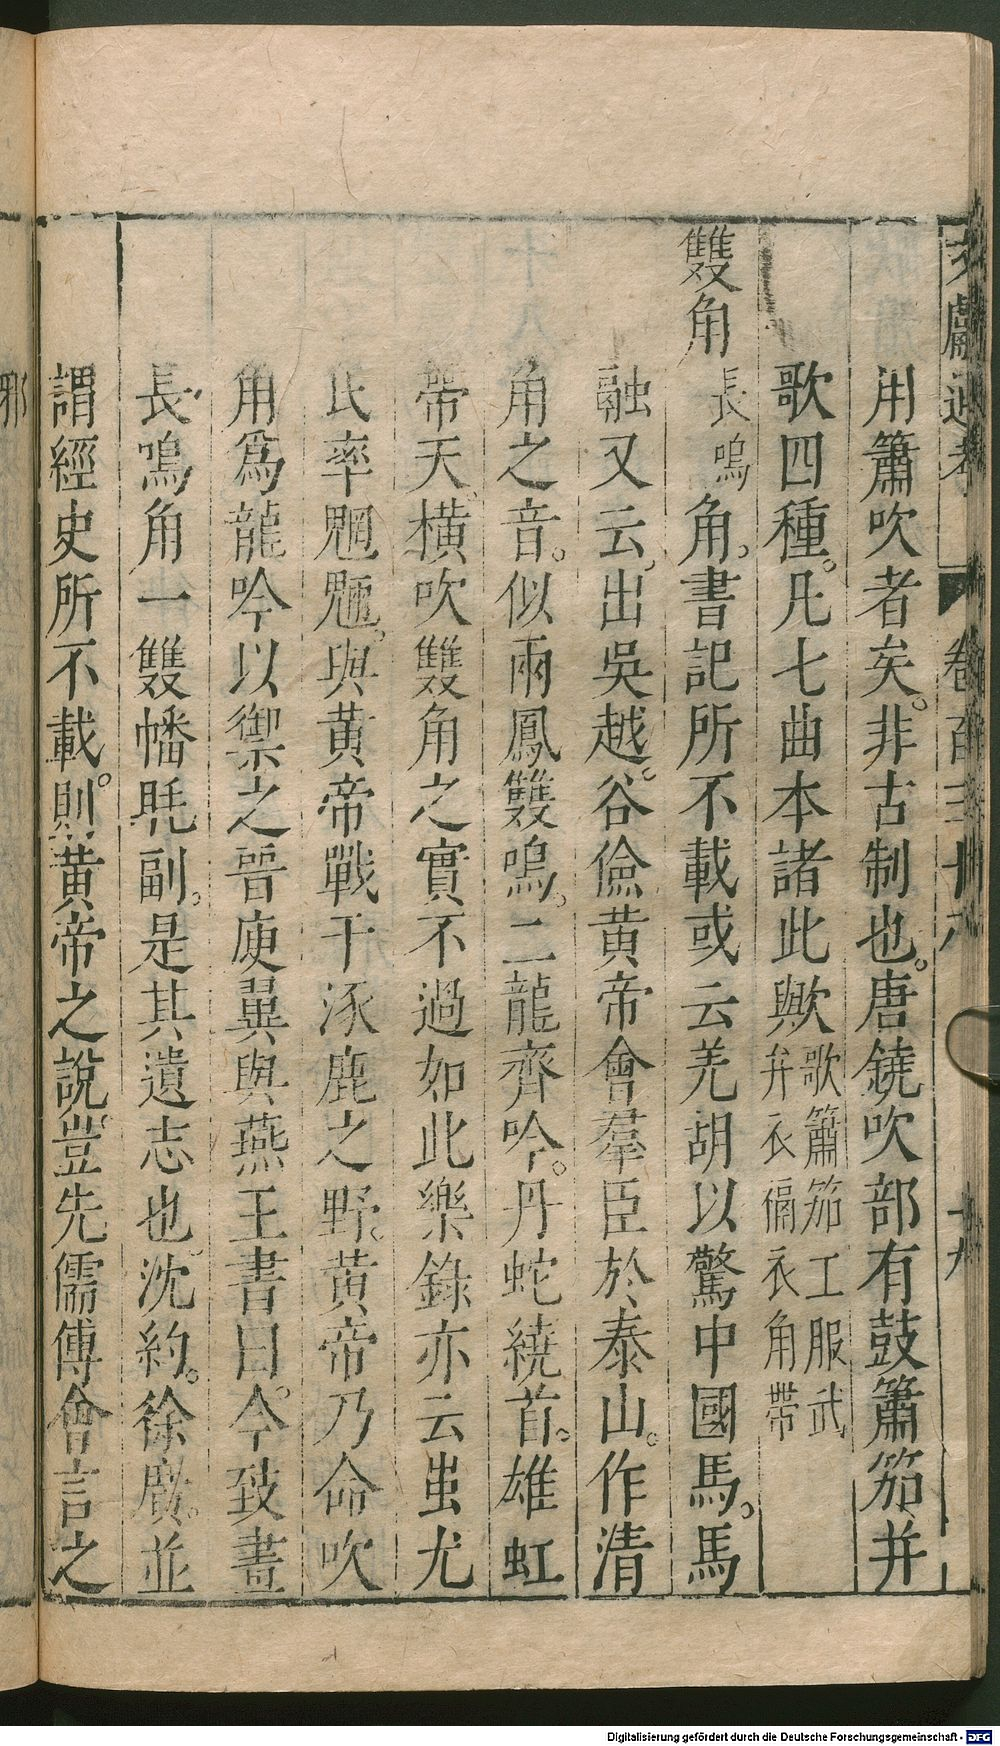 文獻通考 卷百三十八 十九
用簫吹者矣。非古制也。唐鐃吹部有鼓簫笳并
歌四種。凡七曲本諸此歟歌簫笳工服武弁衣褠衣角帶
雙角長鳴角。書記所不載或云羌胡以驚中國馬。馬
融又云。出吳越。谷儉黄帝會羣臣於泰山。作清
角之音。似兩鳳雙鳴。二龍齊吟。丹蛇繞首。雄虹
帶天。橫吹雙角之實不過如此樂錄亦云蚩尤
氏率魍魎。與黄帝戰于涿鹿之野。黄帝乃命吹
角爲龍吟以禦之晉庾翼與燕王書曰。今致畫
長鳴角一雙幡毦副。是其遺志也。沈約。徐廣。並
謂經史所不載。則黄帝之說豈先儒傅會言之
邪
Digitalisierung gefördert durch die Deutsche Forschungsgemeinschaft - DFG